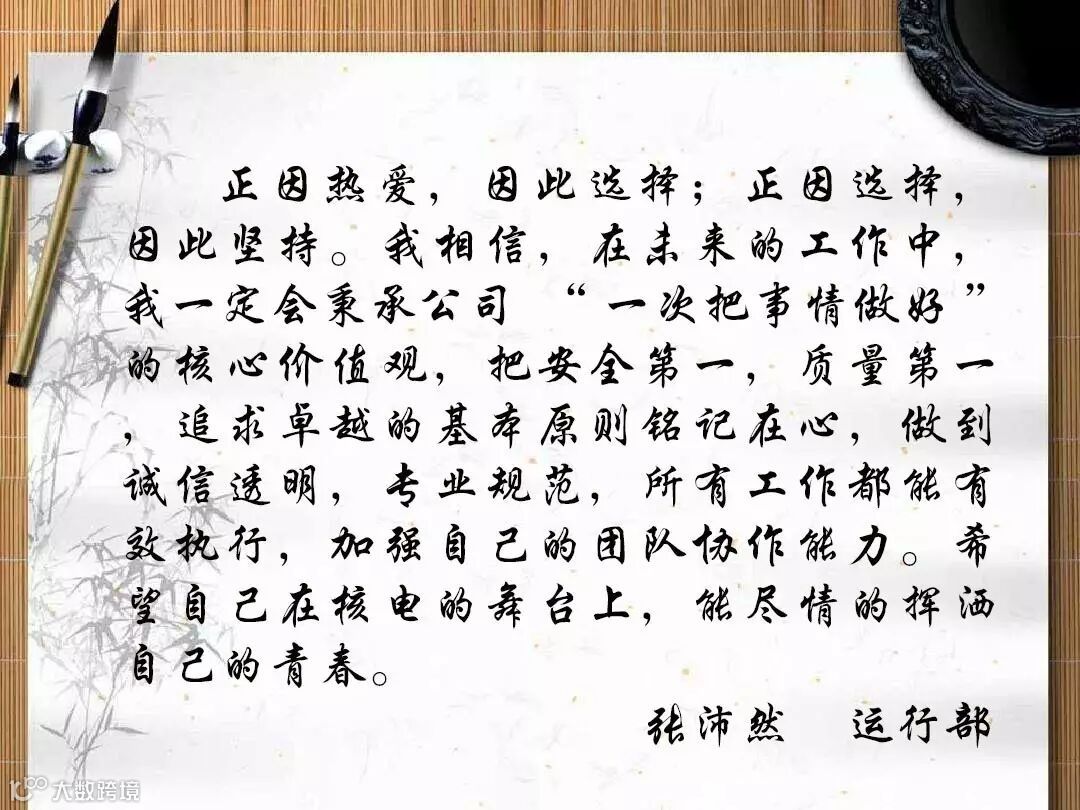 正因热爱，因此选择；正因选择，
因此坚持。我相信，在未来的工作中，
我一定会秉承公司 “一次把事情做好”
的核心价值观，把安全第一，质量第一
，追求卓越的基本原则铭记在心，做到
诚信透明，专业规范，所有工作都能有
效执行，加强自己的团队协作能力。希
望自己在核电的舞台上，能尽情的挥洒
自己的青春。
张沛然 运行部
大数跨境